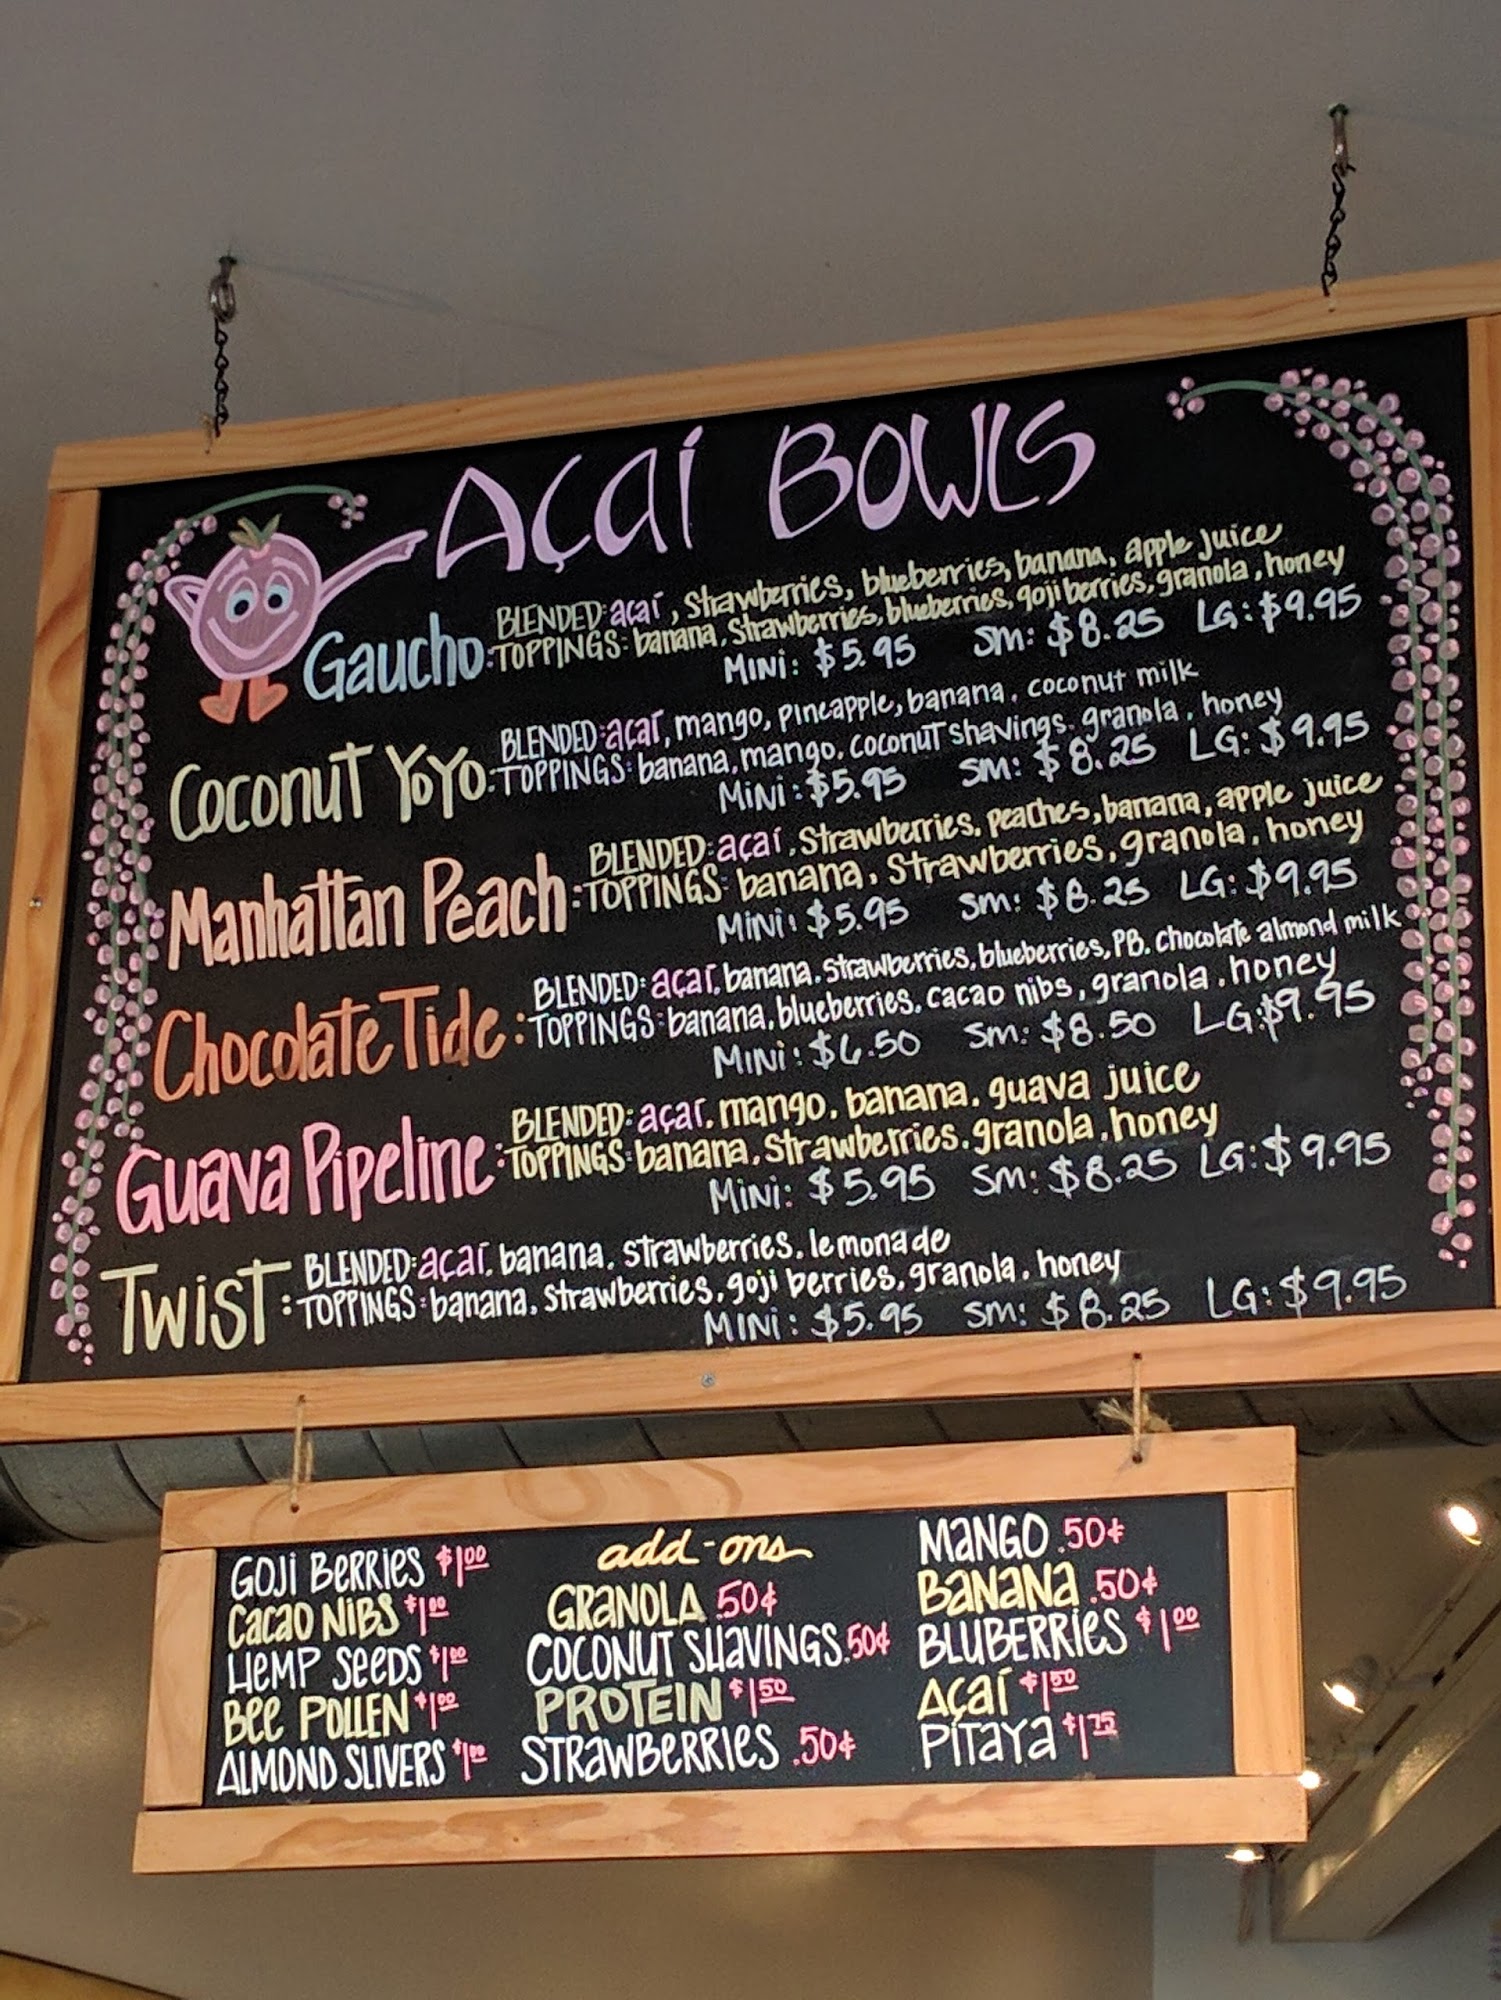 Açaí Bowls
Gaucho: BLENDED: açaí, strawberries, blueberries, banana, apple juice
TOPPINGS: banana, strawberries, blueberries, goji berries, granola, honey
MINI: $5.95 SM: $8.25 LG: $9.95
Coconut YoYo: BLENDED: açaí, mango, pineapple, banana, coconut milk
TOPPINGS: banana, mango, coconut shavings, granola, honey
MINI: $5.95 SM: $8.25 LG: $9.95
Manhattan Peach: BLENDED: açaí, strawberries, peaches, banana, apple juice
TOPPINGS: banana, strawberries, granola, honey
MINI: $5.95 SM: $8.25 LG: $9.95
Chocolate Tide: BLENDED: açaí, banana, strawberries, blueberries, PB, chocolate almond milk
TOPPINGS: banana, blueberries, cacao nibs, granola, honey
MINI: $6.50 SM: $8.50 LG: $9.95
Guava Pipeline: BLENDED: açaí, mango, banana, guava juice
TOPPINGS: banana, strawberries, granola, honey
MINI: $5.95 SM: $8.25 LG: $9.95
Twist: BLENDED: açaí, banana, strawberries, lemonade
TOPPINGS: banana, strawberries, goji berries, granola, honey
MINI: $5.95 SM: $8.25 LG: $9.95
add-ons
GOJI BERRIES $1.00
CACAO NIBS $1.00
HEMP SEEDS $1.00
BEE POLLEN $1.00
ALMOND SLIVERS $1.00
GRANOLA .50¢
COCONUT SHAVINGS .50¢
PROTEIN $1.50
STRAWBERRIES .50¢
MANGO .50¢
BANANA .50¢
BLUBERRIES $1.00
AÇAÍ $1.50
PITAYA $1.75